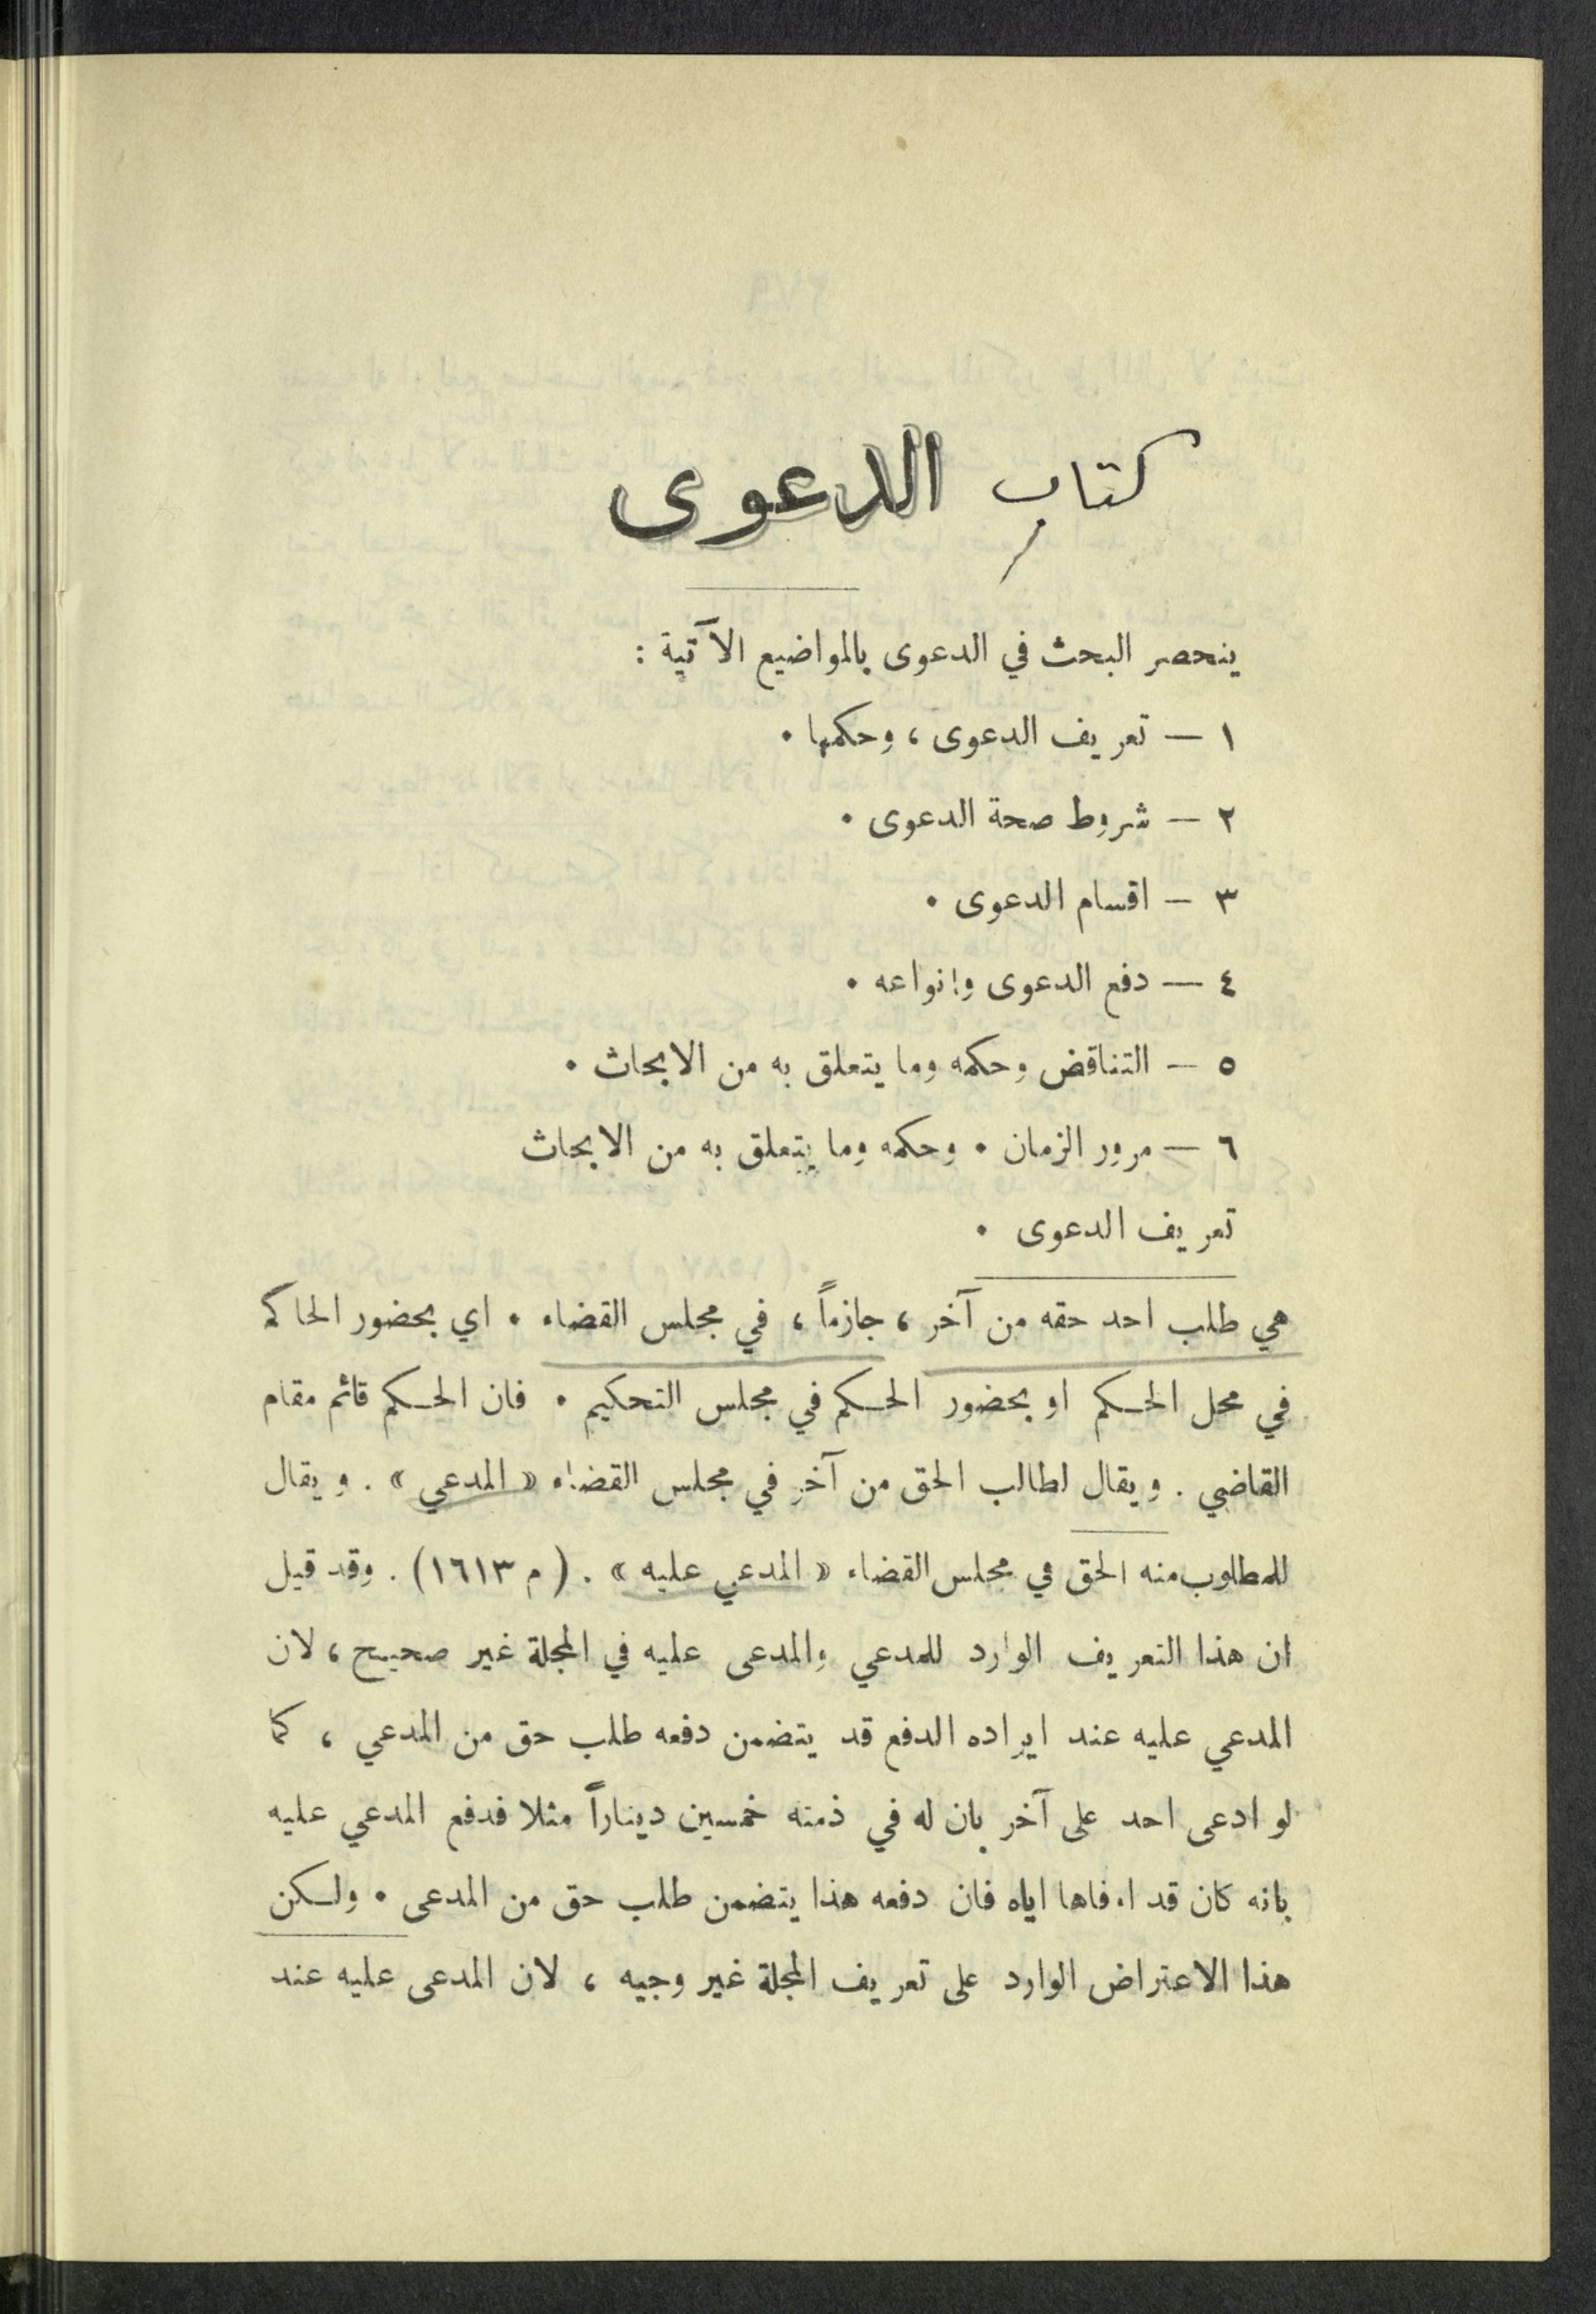 كتاب الدعوى
ينحصر البحث في الدعوى بالمواضيع الآتية :
١ — تعريف الدعوى ، وحكمها .
٢ — شروط صحة الدعوى .
٣ — اقسام الدعوى .
٤ — دفع الدعوى وانواعه .
٥ — التناقض وحكمه وما يتعلق به من الابحاث .
٦ — مرور الزمان . وحكمه وما يتعلق به من الابحاث
تعريف الدعوى .
هي طلب احد حقه من آخر ، جازماً ، في مجلس القضاء . اي بحضور الحاكم
في محل الحكم او بحضور الحكم في مجلس التحكيم . فان الحكم قائم مقام
القاضي . ويقال لطالب الحق من آخر في مجلس القضاء « المدعي » . ويقال
للمطلوب منه الحق في مجلس القضاء « المدعي عليه » . (م ١٦١٣) . وقد قيل
ان هذا التعريف الوارد للمدعي والمدعى عليه في المجلة غير صحيح ، لان
المدعي عليه عند ايراده الدفع قد يتضمن دفعه طلب حق من المدعي ، كما
لو ادعى احد على آخر بان له في ذمته خمسين ديناراً مثلا فدفع المدعي عليه
بانه كان قد اوفاها اياه فان دفعه هذا يتضمن طلب حق من المدعى . ولكن
هذا الاعتراض الوارد على تعريف المجلة غير وجيه ، لان المدعى عليه عند